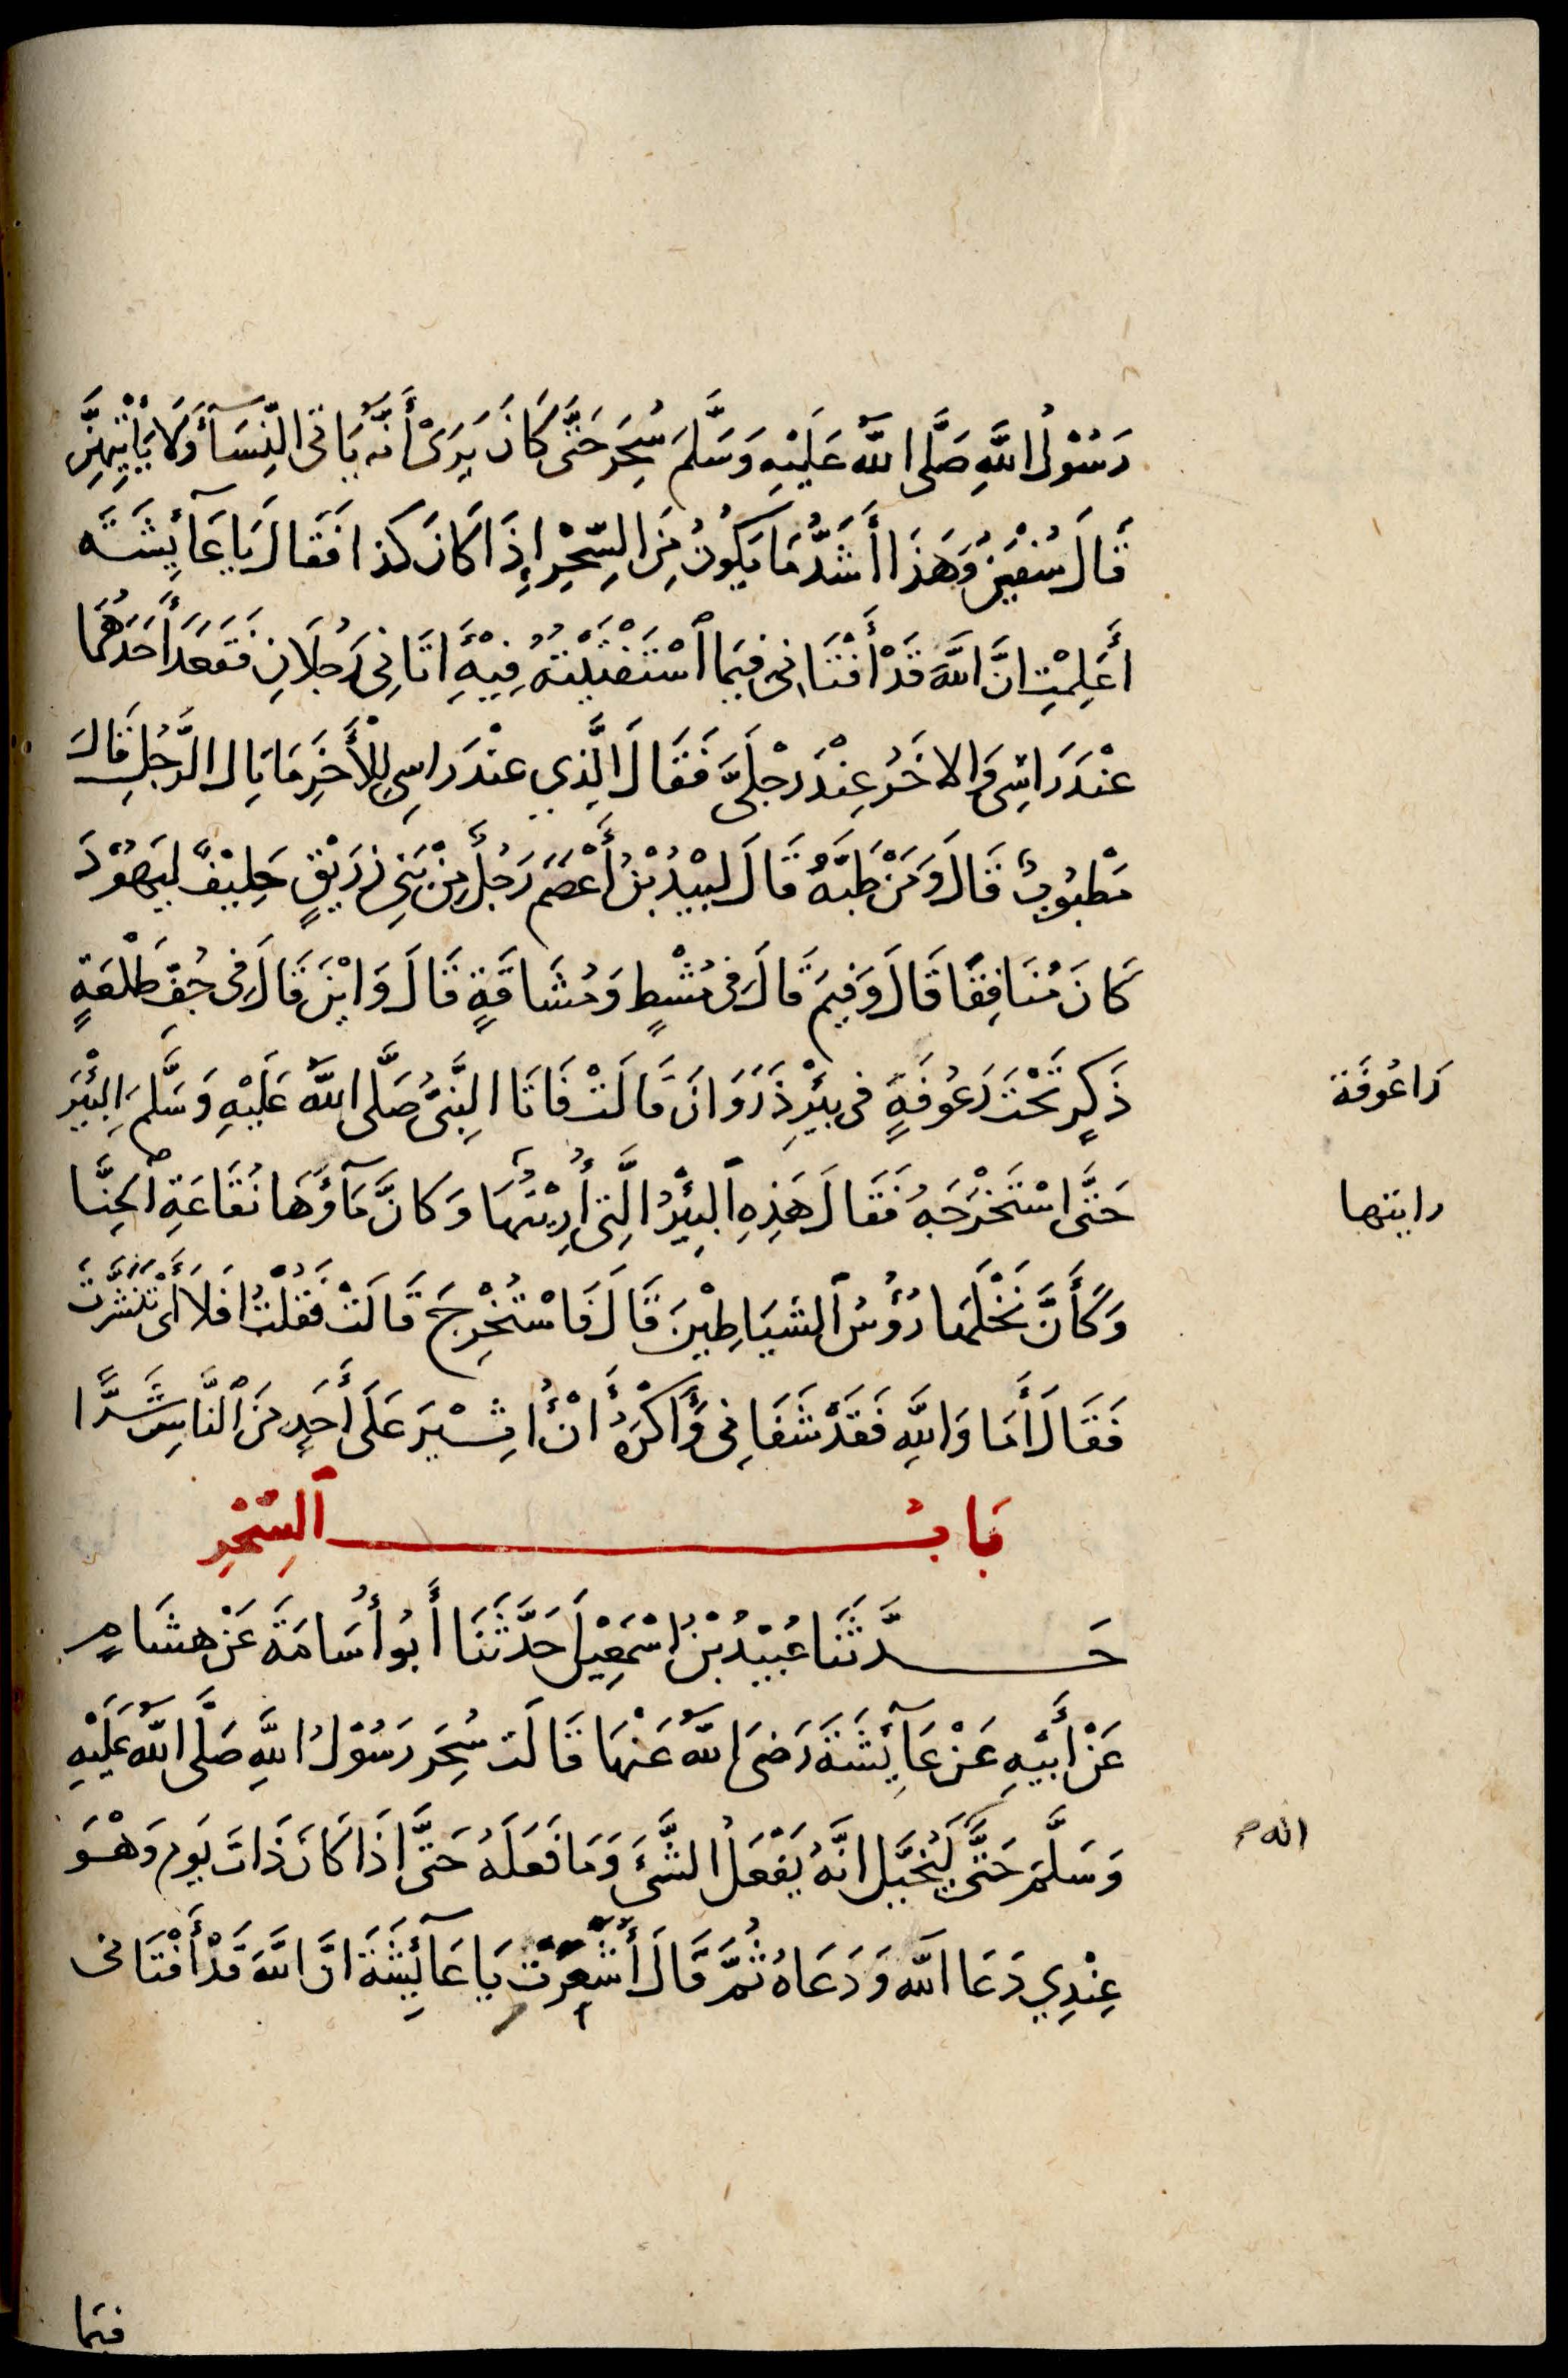 رَسُوْلُ اللَّهِ صَلَّى اللَّهُ عَلَيْهِ وَسَلَّمَ سُحِرَ حَتَّى كَانَ يَرَىْ أَنَّه يَأتى النِّسَآءَ وَلَا يَأْتِيْهِنَّ
قَالَ سُفْيٰنُ وَهَذَا أَشَدُّ مَا يَكُوْنُ مِنَ السِّحْرِ إِذَا كَانَ كَذا فَقَالَ يَا عَآئِشَةَ
أَعَلِمْتِ انَّ اللَّهَ قَدْ أَفْتَانِى فِيمَا اسْتَفْتَيْتُهُ فِيْهِ أَتَانِى رَجُلَانِ فَقَعَدَ أَحَدُهُمَا
عنْدَ رَاسِى وَالاخَرُ عِنْدَ رِجْلَىَّ فَقَالَ الَّذِي عنْدَ راسِى لِلْأَخَرِ مَا بَال الرَّجُلِ قَالَ
مَطْبُوبٌ قَالَ وَمَنْ طَبَّهُ قَالَ لبِيْدُ بْنُ أَعْصَمَ رَجُلٌ مِنْ بَنِى زرَيْقٍ حَلِيْفٌ لِيَهُوْدَ
كَانَ مُنَافِقًا قَالَ وَفِيمَ قَالَ فِى مُشْطٍ وَمُشَاقَةٍ قَالَ وَايْنَ قَالَ فِى جُفِّ طَلْعَةٍ
ذَكَرٍ تَحْتَ رَعُوفَةٍ فى بِئْرِ ذَرَوَانَ قَالَتْ فَاتَا النَّبِىُّ صَلَّى اللَّهُ عَلَيْهِ وَسَلَّمَ البِئْرَ
رَاعُوفَة
حَتَّى اسْتَخْرَجَهُ فَقَالَ هَذِهِ البِئْرُ الَّتِى أُرِيْتُهَا وَكَانَّ مَآؤَهَا نُقَاعَةِ الحِنَّا
رايتها
وَكَأَنَّ نَخْلَها رُؤُسُ الشَيَاطِيْنَ قَالَ فَاسْتُخْرِجَ قَالَتْ فَقُلْتُ افَلَا أَىْ تَنَشَّرْتَ
فَقَالَ أَمَا وَاللَّهِ فَقَدْ شَفَانِى وَأَكْرَهُ أَنْ أُثِيْرَ عَلَى أَحَدٍ مِنَ النَّاسِ شَرًّا
بَابُ السِّحْرِ
حَدَّثَنَا عُبَيْدُ بْنُ اسْمٰعِيْلَ حَدَّثَنَا أَبُو أُسَامَةَ عَنْ هشَامٍ
عَنْ أَبيْهِ عَنْ عَآئِشَةَ رَضىَ اللَّهُ عَنْهَا قَالَت سُحِرَ رَسُوْلُ اللَّهِ صَلَّى اللَّهُ عَلَيْهِ
وَسَلَّمَ حَتَّى لَيُخَيَّل انَّهُ يَفْعَلُ الشَّىَٔ وَمَا فَعَلَهُ حَتَّى اذَا كَانَ ذَاتَ يَوم وَهْوَ
عِنْدِي دَعَا اللَّه وَدَعَاهُ ثُمَّ قَالَ أَشَعَرْتِ يَا عَآئِشَةَ انَّ اللَّهَ قَدْ أَفْتَانى
فيمَا